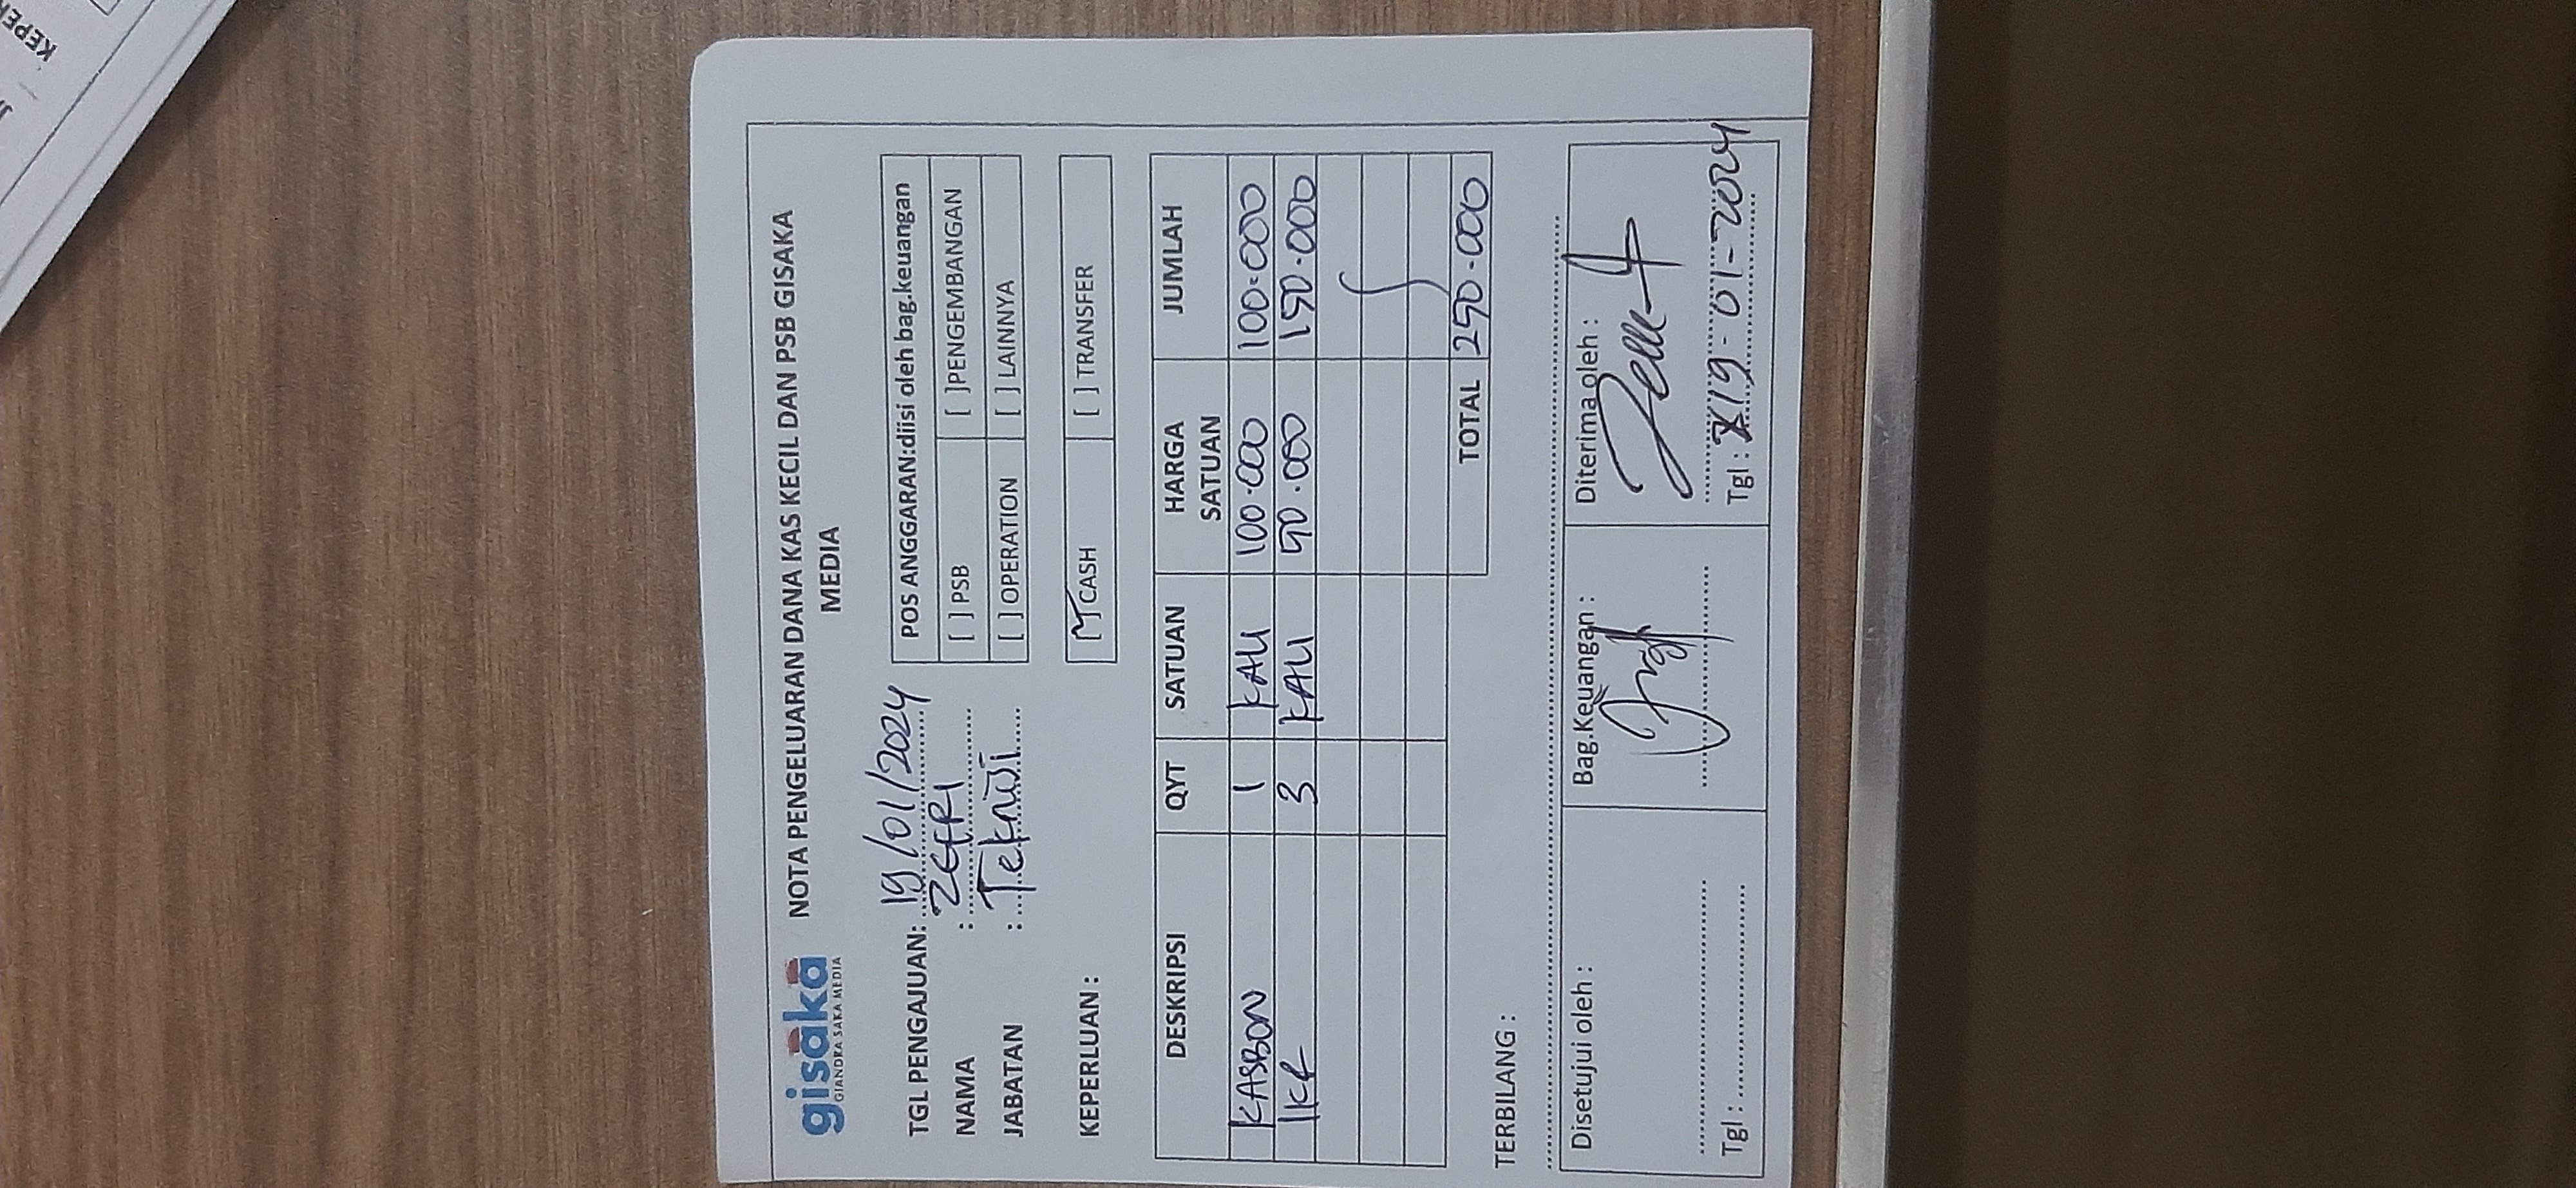 KEPER
gisaka
GIANDRA SAKA MEDIA
NOTA PENGELUARAN DANA KAS KECIL DAN PSB GISAKA
MEDIA
TGL PENGAJUAN: 19/01/2024
NAMA : ZEFRI
JABATAN : Teknisi
POS ANGGARAN:diisi oleh bag.keuangan
[ ] PSB [ ]PENGEMBANGAN
[ ] OPERATION [ ] LAINNYA
KEPERLUAN :
[✓] CASH [ ] TRANSFER
DESKRIPSI QYT SATUAN HARGA SATUAN JUMLAH
KASBON 1 KALI 100.000 100.000
IKR 3 KALI 50.000 150.000
TOTAL 250.000
TERBILANG :
Disetujui oleh : Bag.Keuangan : Diterima oleh :
Tgl : Tgl : 19-01-2024